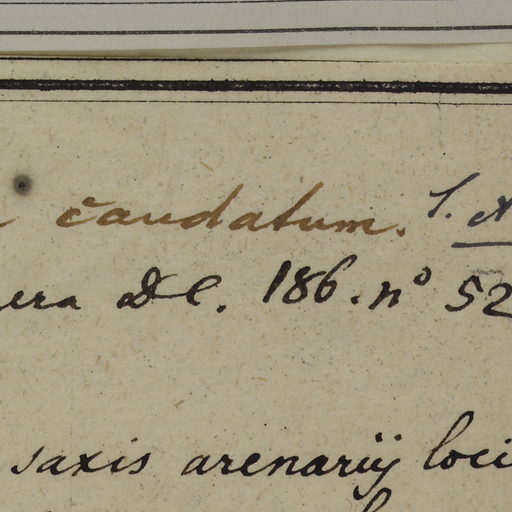 caudatum. S.
era DC. 186. nº 52
saxis arenariij loci